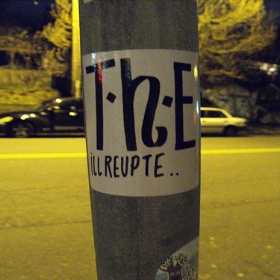 T·h·E
iLLREUPTE..